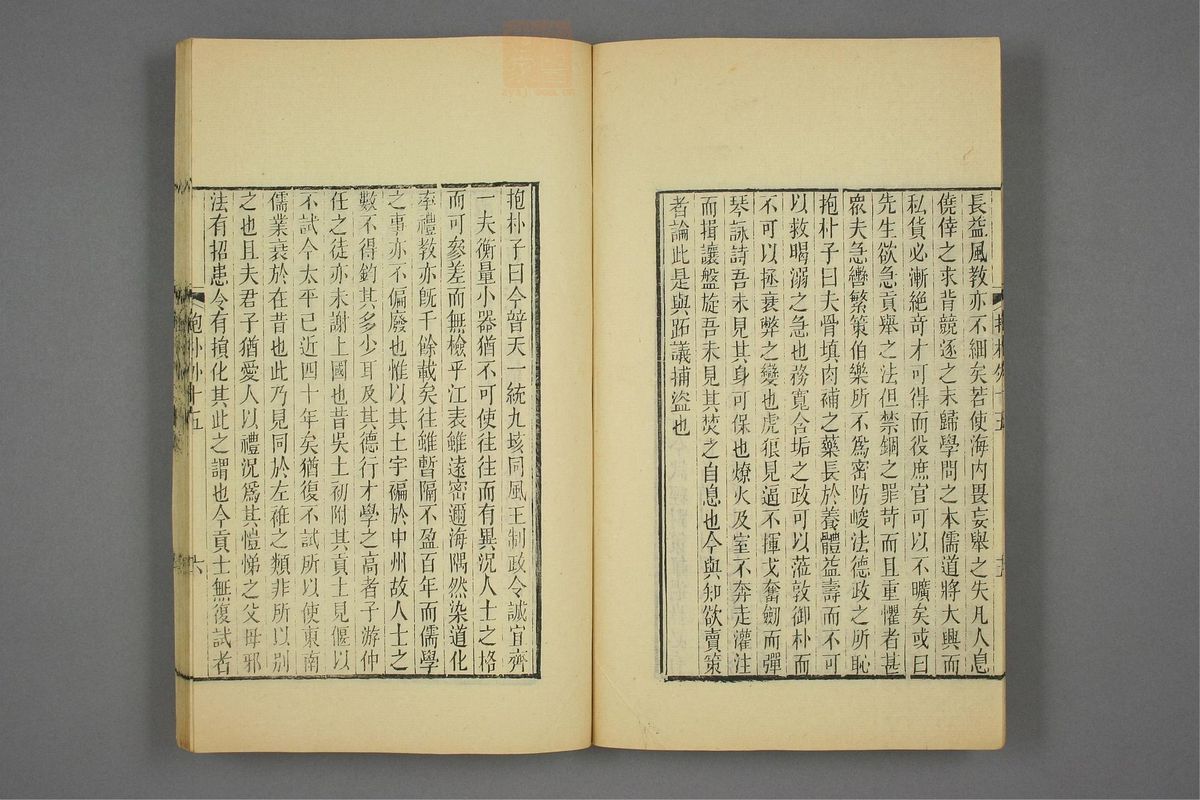 長益風教亦不細矣若使海内畏妄舉之失凡人息
僥倖之求背競逐之末歸學問之本儒道將大興而
私貨必漸絶奇才可得而役庶官可以不曠矣或曰
先生欲急貢舉之法但禁錮之罪苛而且重懼者甚
衆夫急轡繁策伯樂所不爲密防峻法德政之所恥
抱朴子曰夫骨填肉補之藥長於養體益壽而不可
以救暍溺之急也務寬含垢之政可以蒞敦御朴而
不可以拯衰弊之變也虎狼見逼不揮戈奮劒而彈
琴詠詩吾未見其身可保也燎火及室不奔走灌注
而揖讓盤旋吾未見其焚之自息也今與知欲賣策
者論此是與跖議捕盜也
抱朴子曰今普天一統九垓同風王制政令誠宜齊
一夫衡量小器猶不可使往往而有異况人士之格
而可參差而無檢乎江表雖遠密邇海隅然染道化
率禮教亦旣千餘載矣往雖暫隔不盈百年而儒學
之事亦不偏廢也惟以其土宇褊於中州故人士之
數不得鈞其多少耳及其德行才學之高者子游仲
任之徒亦未謝上國也昔吳土初附其貢士見偃以
不試今太平已近四十年矣猶復不試所以使東南
儒業衰於在昔也此乃見同於左衽之類非所以別
之也且夫君子猶愛人以禮况爲其愷悌之父母邪
法有招患令有損化其此之謂也今貢士無復試者
抱朴外十五
六